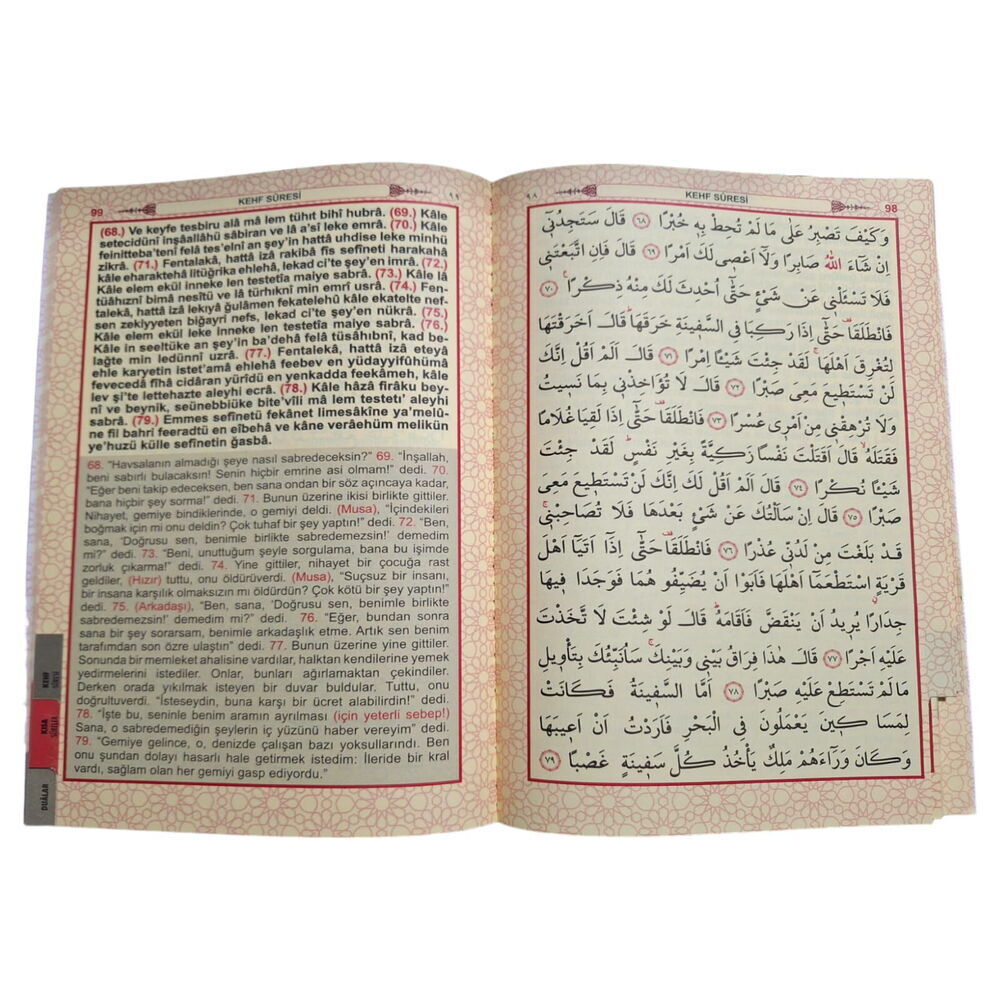 99
KEHF SÛRESİ
٩٩
(68.) Ve keyfe tesbiru alâ mâ lem tühıt bihî hubrâ. (69.) Kâle
setecidünî inşâallâhü sâbiran ve lâ a'sî leke emrâ. (70.) Kâle
feinitteba'tenî felâ tes'elnî an şey'in hattâ uhdise leke minhü
zikrâ. (71.) Fentalakâ, hattâ izâ rakibâ fis sefîneti harakahâ
kâle eharaktehâ litüğrika ehlehâ, lekad ci'te şey'en imrâ. (72.)
Kâle elem ekül inneke len testetîa maiye sabrâ. (73.) Kâle lâ
tüâhıznî bimâ nesîtü ve lâ türhıknî min emrî usrâ. (74.) Fen-
talekâ, hattâ izâ lekıyâ ğulâmen fekatelehû kâle ekatelte nef-
sen zekiyyeten biğayri nefs, lekad ci'te şey'en nükrâ. (75.)
Kâle elem ekül leke inneke len testetîa maiye sabrâ. (76.)
Kâle in seeltüke an şey'in ba'dehâ felâ tüsâhıbnî, kad be-
lağte min ledünnî uzrâ. (77.) Fentalekâ, hattâ izâ eteyâ
ehle karyetin istet'amâ ehlehâ feebev en yüdayyifûhümâ
fevecedâ fîhâ cidâran yürîdü en yenkadda feekâmeh, kâle
lev şi'te lettehazte aleyhi ecrâ. (78.) Kâle hâzâ firâku bey-
nî ve beynik, seünebbiüke bite'vîli mâ lem testetı' aleyhi
sabrâ. (79.) Emmes sefînetü fekânet limesâkîne ya'melû-
ne fil bahri feeradtü en eîbehâ ve kâne verâehüm melikün
ye'huzü külle sefînetin ğasbâ.
68. "Havsalanın almadığı şeye nasıl sabredeceksin?" 69. "İnşallah,
beni sabırlı bulacaksın! Senin hiçbir emrine asi olmam!" dedi. 70.
"Eğer beni takip edeceksen, ben sana ondan bir söz açıncaya kadar,
bana hiçbir şey sorma!" dedi. 71. Bunun üzerine ikisi birlikte gittiler.
Nihayet, gemiye bindiklerinde, o gemiyi deldi. (Musa), "İçindekileri
boğmak için mi onu deldin? Çok tuhaf bir şey yaptın!" dedi. 72. "Ben,
sana, 'Doğrusu sen, benimle birlikte sabredemezsin!' demedim
mi?" dedi. 73. "Beni, unuttuğum şeyle sorgulama, bana bu işimde
zorluk çıkarma!" dedi. 74. Yine gittiler, nihayet bir çocuğa rast
geldiler, (Hızır) tuttu, onu öldürüverdi. (Musa), "Suçsuz bir insanı,
bir insana karşılık olmaksızın mı öldürdün? Çok kötü bir şey yaptın!"
dedi. 75. (Arkadaşı), "Ben, sana, 'Doğrusu sen, benimle birlikte
sabredemezsin!' demedim mi?" dedi. 76. "Eğer, bundan sonra
sana bir şey sorarsam, benimle arkadaşlık etme. Artık sen benim
tarafımdan son özre ulaştın" dedi. 77. Bunun üzerine yine gittiler.
Sonunda bir memleket ahalisine vardılar, halktan kendilerine yemek
yedirmelerini istediler. Onlar, bunları ağırlamaktan çekindiler.
Derken orada yıkılmak isteyen bir duvar buldular. Tuttu, onu
doğrultuverdi. "İsteseydin, buna karşı bir ücret alabilirdin!" dedi.
78. "İşte bu, seninle benim aramın ayrılması (için yeterli sebep!)
Sana, o sabredemediğin şeylerin iç yüzünü haber vereyim" dedi.
79. "Gemiye gelince, o, denizde çalışan bazı yoksullarındı. Ben
onu şundan dolayı hasarlı hale getirmek istedim: İleride bir kral
vardı, sağlam olan her gemiyi gasp ediyordu."
KEHF
SÛRESİ
KISA
SÛRELER
DUÂLAR
٩٨
KEHF SÛRESİ
98
وَكَيْفَ تَصْبِرُ عَلٰى مَا لَمْ تُحِطْ بِه۪ خُبْرًا ﴿٦٨﴾ قَالَ سَتَجِدُن۪ٓي
اِنْ شَٓاءَ اللّٰهُ صَابِرًا وَلَٓا اَعْص۪ي لَكَ اَمْرًا ﴿٦٩﴾ قَالَ فَاِنِ اتَّبَعْتَن۪ي
فَلَا تَسْـَٔلْن۪ي عَنْ شَيْءٍ حَتّٰٓى اُحْدِثَ لَكَ مِنْهُ ذِكْرًا۟ ﴿٧٠﴾
فَانْطَلَقَا۠ حَتّٰٓى اِذَا رَكِبَا فِي السَّف۪ينَةِ خَرَقَهَاۜ قَالَ اَخَرَقْتَهَا
لِتُغْرِقَ اَهْلَهَاۚ لَقَدْ جِئْتَ شَيْـًٔا اِمْرًا ﴿٧١﴾ قَالَ اَلَمْ اَقُلْ اِنَّكَ
لَنْ تَسْتَط۪يعَ مَعِيَ صَبْرًا ﴿٧٢﴾ قَالَ لَا تُؤَاخِذْن۪ي بِمَا نَس۪يتُ
وَلَا تُرْهِقْن۪ي مِنْ اَمْر۪ي عُسْرًا ﴿٧٣﴾ فَانْطَلَقَا۠ حَتّٰٓى اِذَا لَقِيَا غُلَامًا
فَقَتَلَهُۙ قَالَ اَقَتَلْتَ نَفْسًا زَكِيَّةً بِغَيْرِ نَفْسٍۜ لَقَدْ جِئْتَ
شَيْـًٔا نُكْرًا ﴿٧٤﴾ قَالَ اَلَمْ اَقُلْ لَكَ اِنَّكَ لَنْ تَسْتَط۪يعَ مَعِيَ
صَبْرًا ﴿٧٥﴾ قَالَ اِنْ سَاَلْتُكَ عَنْ شَيْءٍ بَعْدَهَا فَلَا تُصَاحِبْن۪يۚ
قَدْ بَلَغْتَ مِنْ لَدُنّ۪ي عُذْرًا ﴿٧٦﴾ فَانْطَلَقَا۠ حَتّٰٓى اِذَٓا اَتَيَٓا اَهْلَ
قَرْيَةٍۨ اسْتَطْعَمَٓا اَهْلَهَا فَاَبَوْا اَنْ يُضَيِّفُوهُمَا فَوَجَدَا ف۪يهَا
جِدَارًا يُر۪يدُ اَنْ يَنْقَضَّ فَاَقَامَهُۜ قَالَ لَوْ شِئْتَ لَتَّخَذْتَ
عَلَيْهِ اَجْرًا ﴿٧٧﴾ قَالَ هٰذَا فِرَاقُ بَيْن۪ي وَبَيْنِكَۚ سَاُنَبِّئُكَ بِتَأْو۪يلِ
مَا لَمْ تَسْتَطِعْ عَلَيْهِ صَبْرًا ﴿٧٨﴾ اَمَّا السَّف۪ينَةُ فَكَانَتْ
لِمَسَاك۪ينَ يَعْمَلُونَ فِي الْبَحْرِ فَاَرَدْتُ اَنْ اَع۪يبَهَا
وَكَانَ وَرَٓاءَهُمْ مَلِكٌ يَأْخُذُ كُلَّ سَف۪ينَةٍ غَصْبًا ﴿٧٩﴾